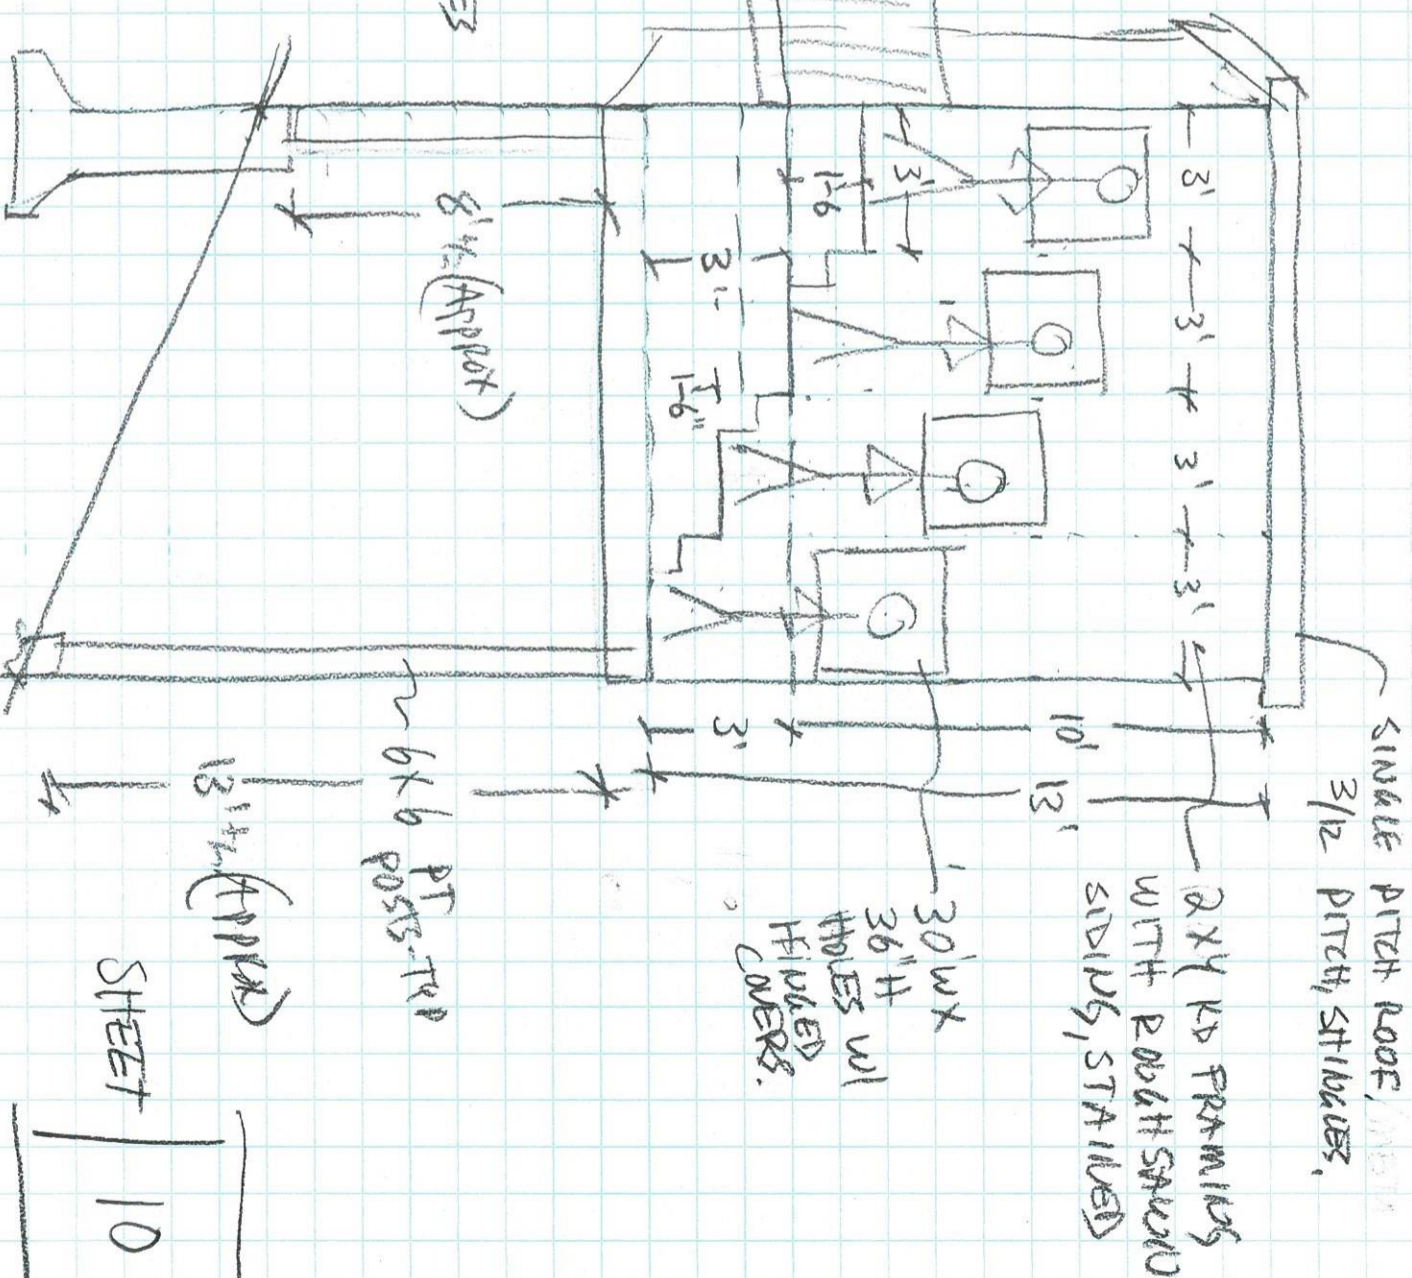 SINGLE PITCH ROOF,
3/12 PITCH, SHINGLES.
2X4 KD FRAMING
WITH ROUGH SAWN
SIDING, STAINED
3'
3'
3'
3'
10'
13'
3'
3'
1-6
3'-
1-6"
30"W X
36"H
HOLES W/
HINGED
COVERS.
8'+/- (APPROX)
6X6 PT
POSTS-TYP
13'+/- (APPROX)
SHEET
10